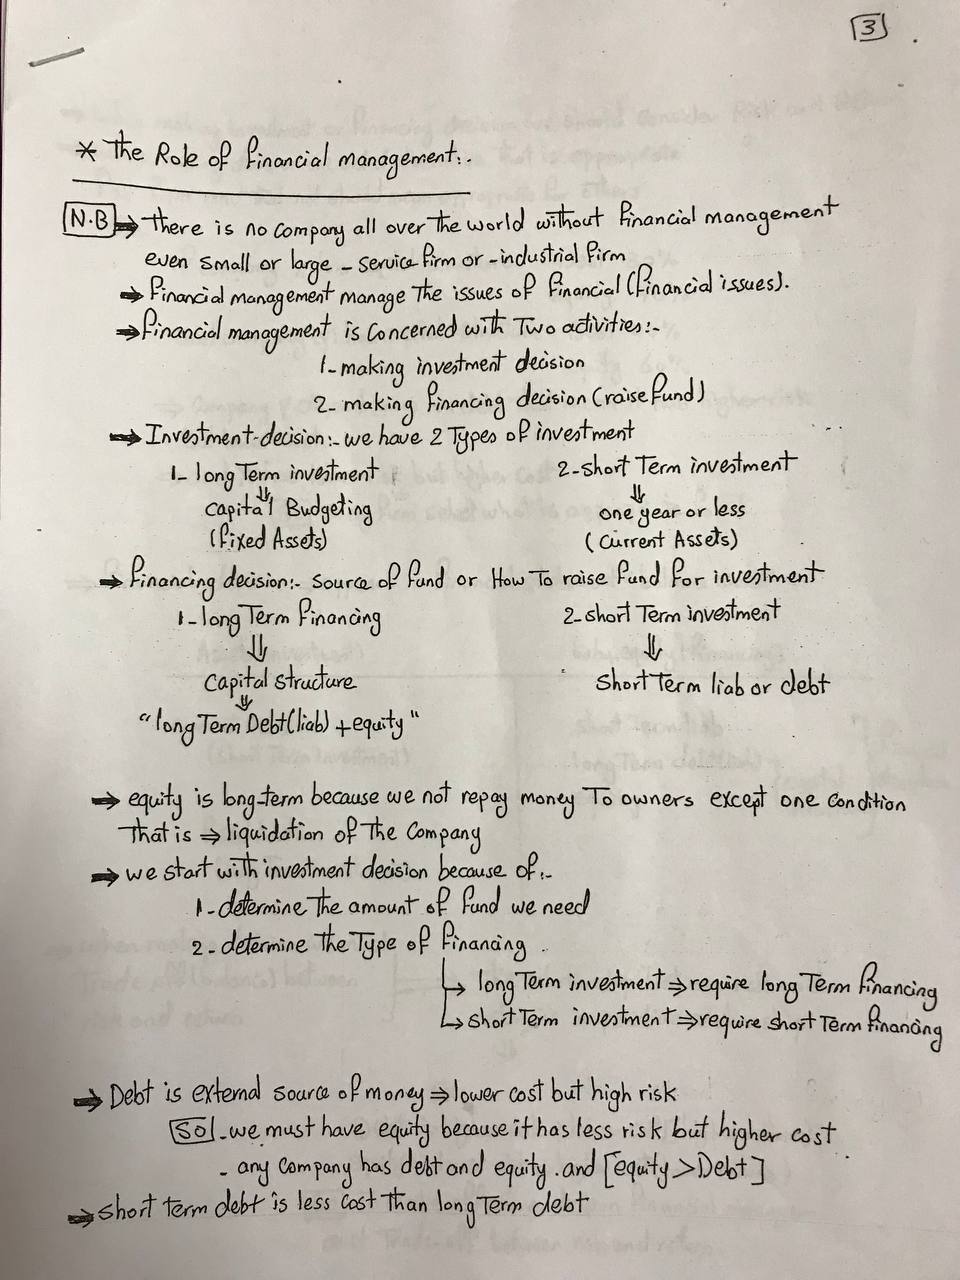 3
* The Role of financial management:.
N.B ⇒ there is no company all over the world without financial management
even small or large - service firm or - industrial firm
⇒ financial management manage the issues of financial (financial issues).
⇒ financial management is concerned with Two activities:-
1- making investment decision
2- making financing decision (raise fund)
⇒ Investment-decision:- we have 2 Types of investment
1- long Term investment 2- short Term investment
⇓ ⇓
Capital Budgeting one year or less
(fixed Assets) (current Assets)
⇒ financing decision:- source of fund or How To raise fund for investment
1- long Term financing 2- short Term investment
⇓ ⇓
Capital structure short Term liab or debt
⇓
"long Term Debt (liab) + equity"
⇒ equity is long-term because we not repay money To owners except one condition
That is ⇒ liquidation of The Company
⇒ we start with investment decision because of:-
1- determine The amount of fund we need
2- determine The Type of financing.
↳ long Term investment ⇒ require long Term financing
↳ short Term investment ⇒ require short Term financing
⇒ Debt is external source of money ⇒ lower cost but high risk
So - we must have equity because it has less risk but higher cost.
- any company has debt and equity. and [equity > Debt]
⇒ short term debt is less cost Than long Term debt